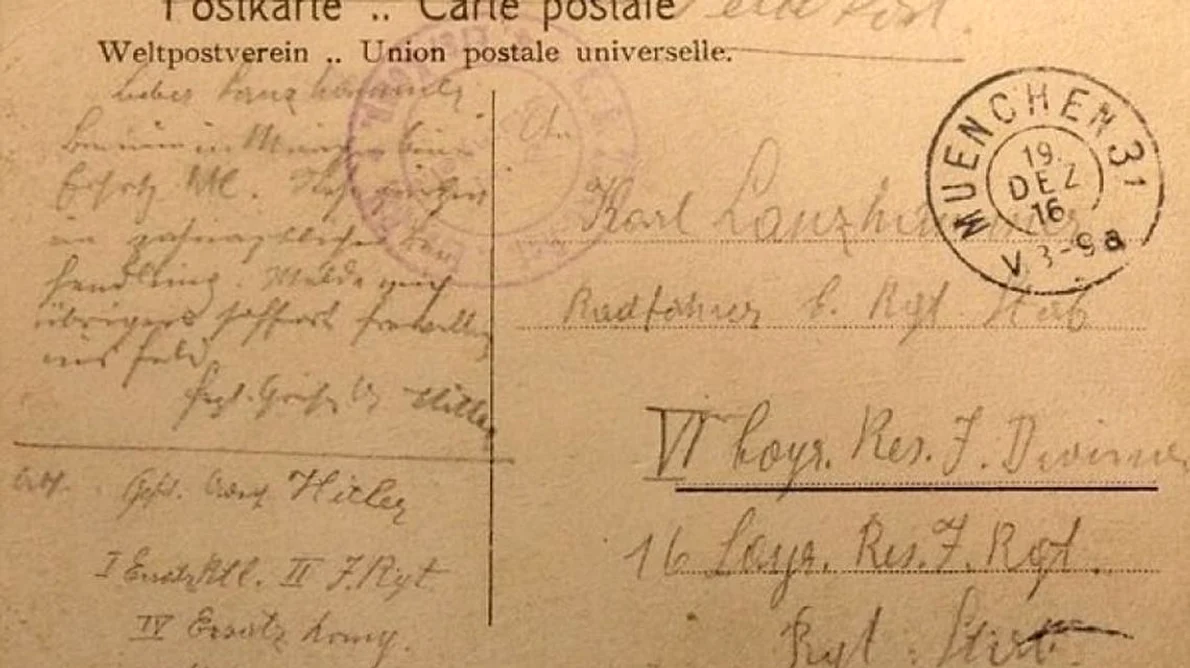 Postkarte .. Carte postale
Feldpost.
Weltpostverein .. Union postale universelle.
Lieber Lanzhammer,
bin nun in München beim
Ersatz Btl. Stehe
in zahnärztlicher Be
handlung. Melde mich
übrigens sofort freiwillig
ins Feld.
Hrzl. Grüße A. Hitler
Abs. Gefr. Adolf Hitler
I Ersatz Btl. II I. Rgt.
IV Ersatz Komp.
An
Karl Lanzhammer
Radfahrer b. Rgt. Stab
VI bayr. Res. I. Division
16 bayr. Res. I. Rgt.
Rgt. Stab
MUENCHEN 31
19.
DEZ
16
V 8-9 a